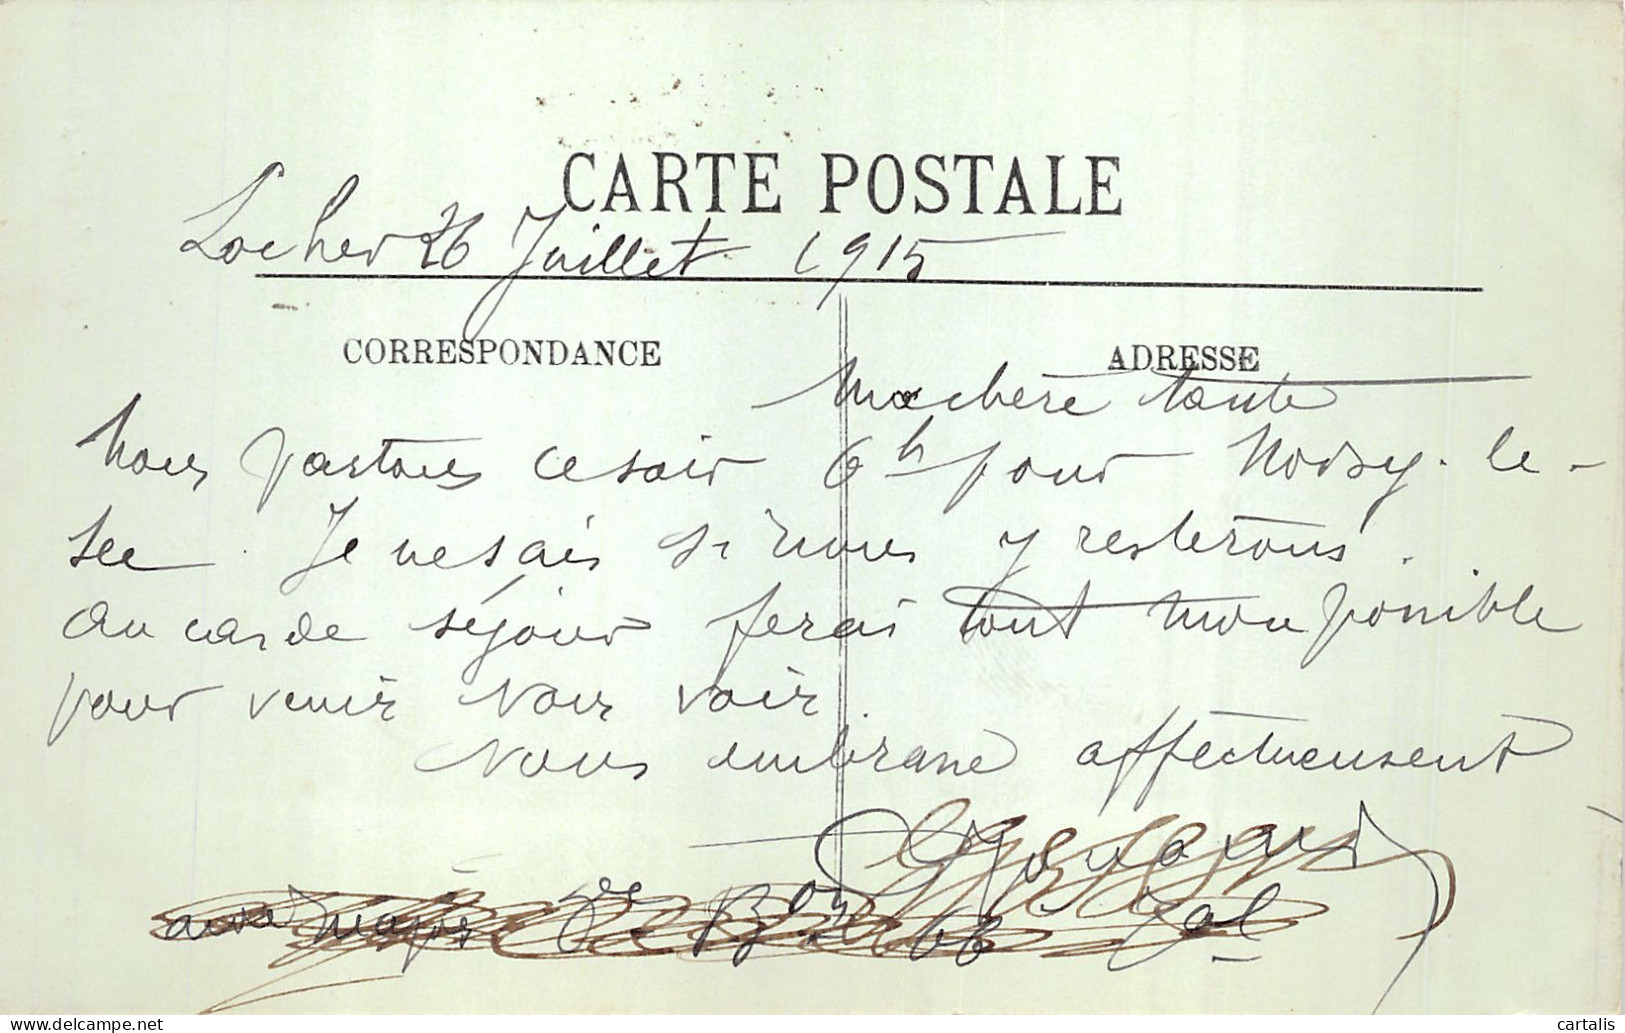 CARTE POSTALE
Loches 26 Juillet 1915
CORRESPONDANCE
ADRESSE
Ma chère tante
Nous partons ce soir 6h pour Noisy-le-
Sec. Je ne sais si nous y resterons.
Au cas de séjour ferai tout mon possible
pour venir vous voir
Vous embrasse affectueusement
major Bon 66 Tal
www.delcampe.net
cartalis